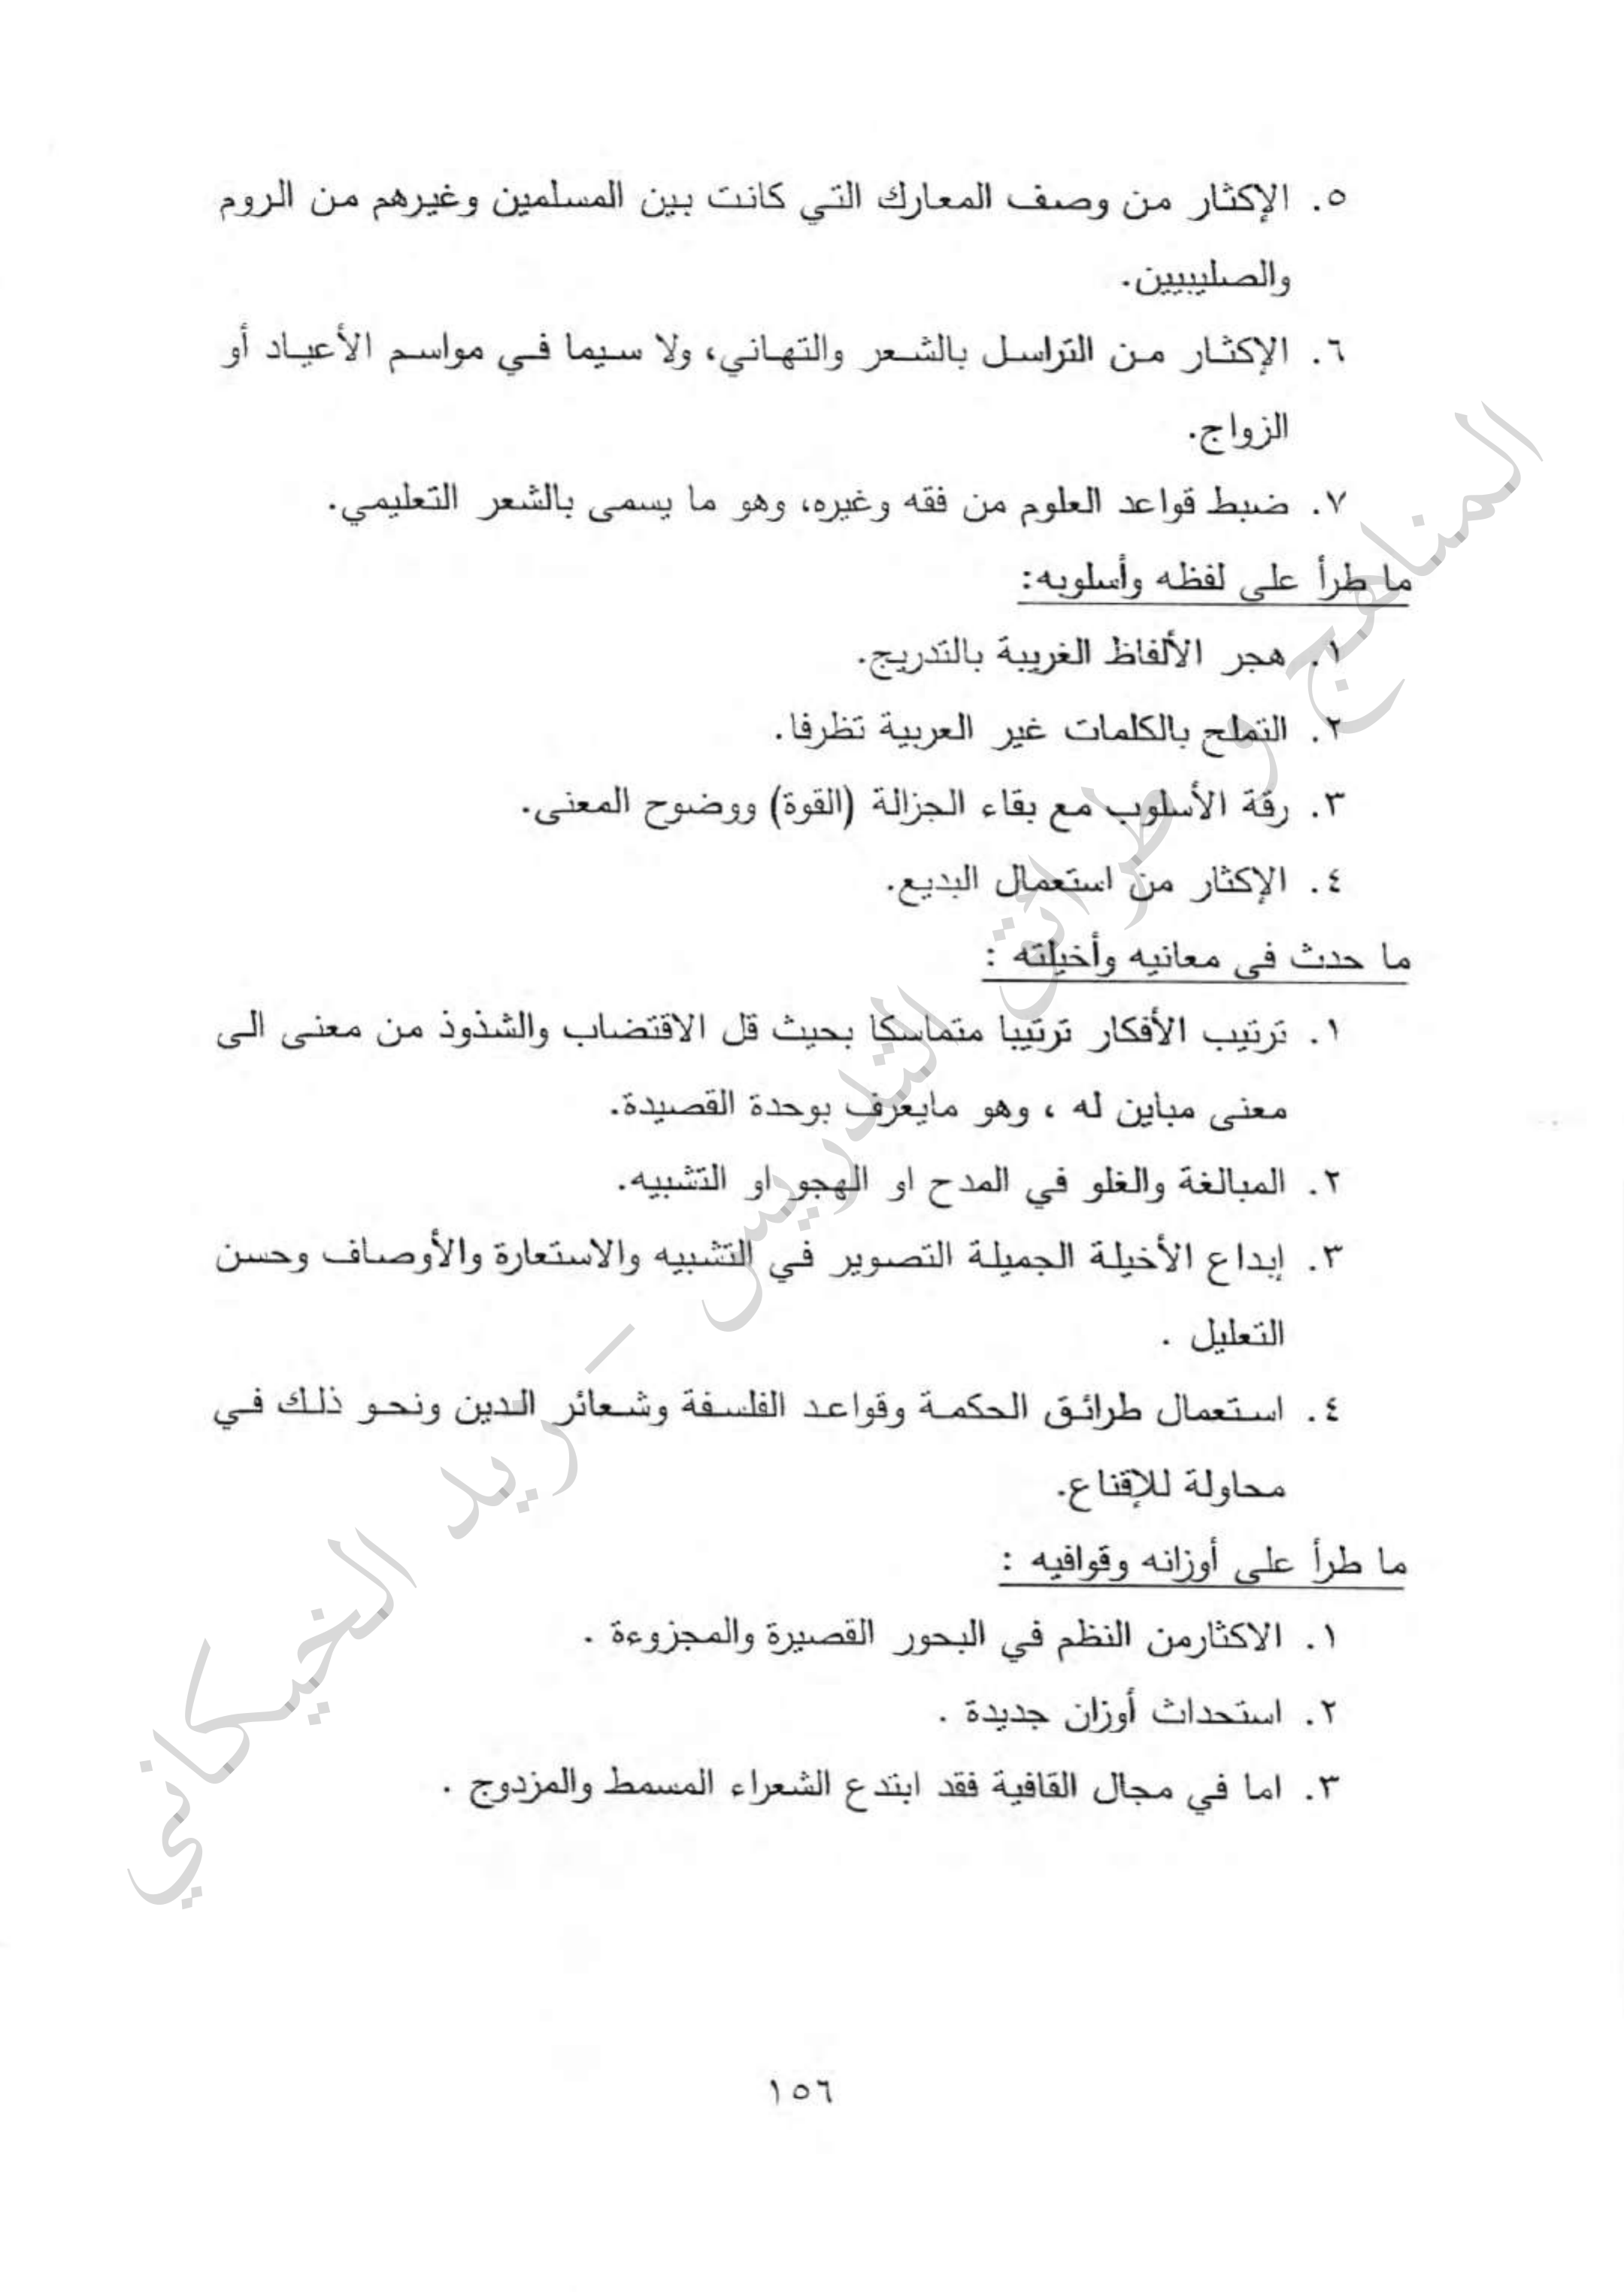 ٥. الإكثار من وصف المعارك التي كانت بين المسلمين وغيرهم من الروم
والصليبيين.
٦. الإكثار من التراسل بالشعر والتهاني، ولا سيما في مواسم الأعياد أو
الزواج.
٧. ضبط قواعد العلوم من فقه وغيره، وهو ما يسمى بالشعر التعليمي.
ما طرأ على لفظه وأسلوبه:
١. هجر الألفاظ الغريبة بالتدريج.
٢. التملح بالكلمات غير العربية تظرفا.
٣. رقة الأسلوب مع بقاء الجزالة (القوة) ووضوح المعنى.
٤. الإكثار من استعمال البديع.
ما حدث في معانيه وأخيلته :
١. ترتيب الأفكار ترتيبا متماسكا بحيث قل الاقتضاب والشذوذ من معنى الى
معنى مباين له ، وهو مايعرف بوحدة القصيدة.
٢. المبالغة والغلو في المدح او الهجو او التشبيه.
٣. إبداع الأخيلة الجميلة التصوير في التشبيه والاستعارة والأوصاف وحسن
التعليل .
٤. استعمال طرائق الحكمة وقواعد الفلسفة وشعائر الدين ونحو ذلك في
محاولة للإقناع.
ما طرأ على أوزانه وقوافيه :
١. الاكثارمن النظم في البحور القصيرة والمجزوءة .
٢. استحداث أوزان جديدة .
٣. اما في مجال القافية فقد ابتدع الشعراء المسمط والمزدوج .
١٥٦
المناهج و طرائق التدريس – ريد الخيكاني